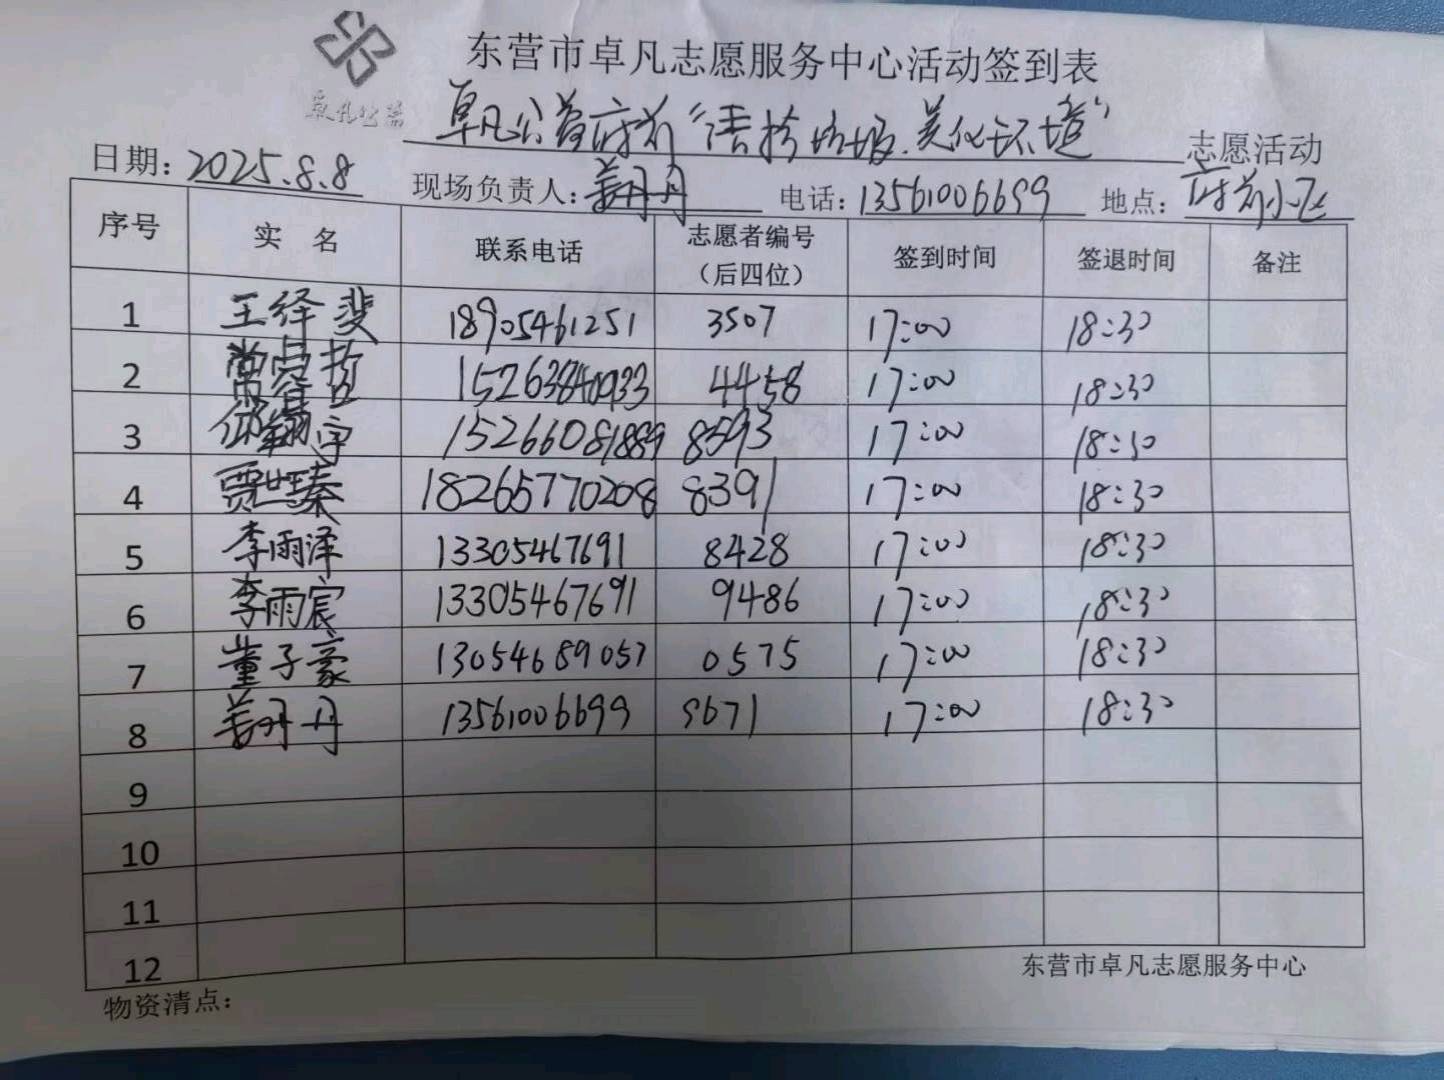 卓凡公益
东营市卓凡志愿服务中心活动签到表
卓凡公益府前“清捡垃圾.美化环境” 志愿活动
日期: 2025.8.8 现场负责人: 姜丹丹 电话: 13561006699 地点: 府前小区
序号 实 名 联系电话 志愿者编号（后四位） 签到时间 签退时间 备注
1 王绎斐 18905461251 3507 17:00 18:30
2 15263840933 4458 17:00 18:30
3 15266081889 8593 17:00 18:30
4 贾世蓁 18265770208 8391 17:00 18:30
5 李雨泽 13305467691 8428 17:00 18:30
6 李雨宸 13305467691 9486 17:00 18:30
7 董子豪 13054689057 0575 17:00 18:30
8 姜丹丹 13561006699 9671 17:00 18:30
9
10
11
12
东营市卓凡志愿服务中心
物资清点: